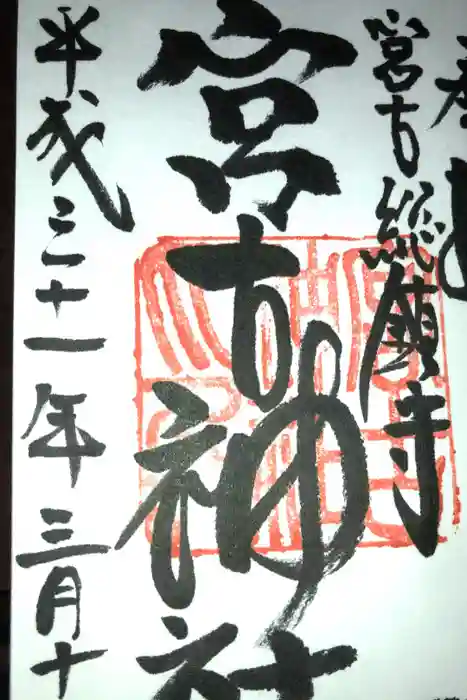 奉拝
宮古総鎮守
宮古神社
平成三十一年三月十